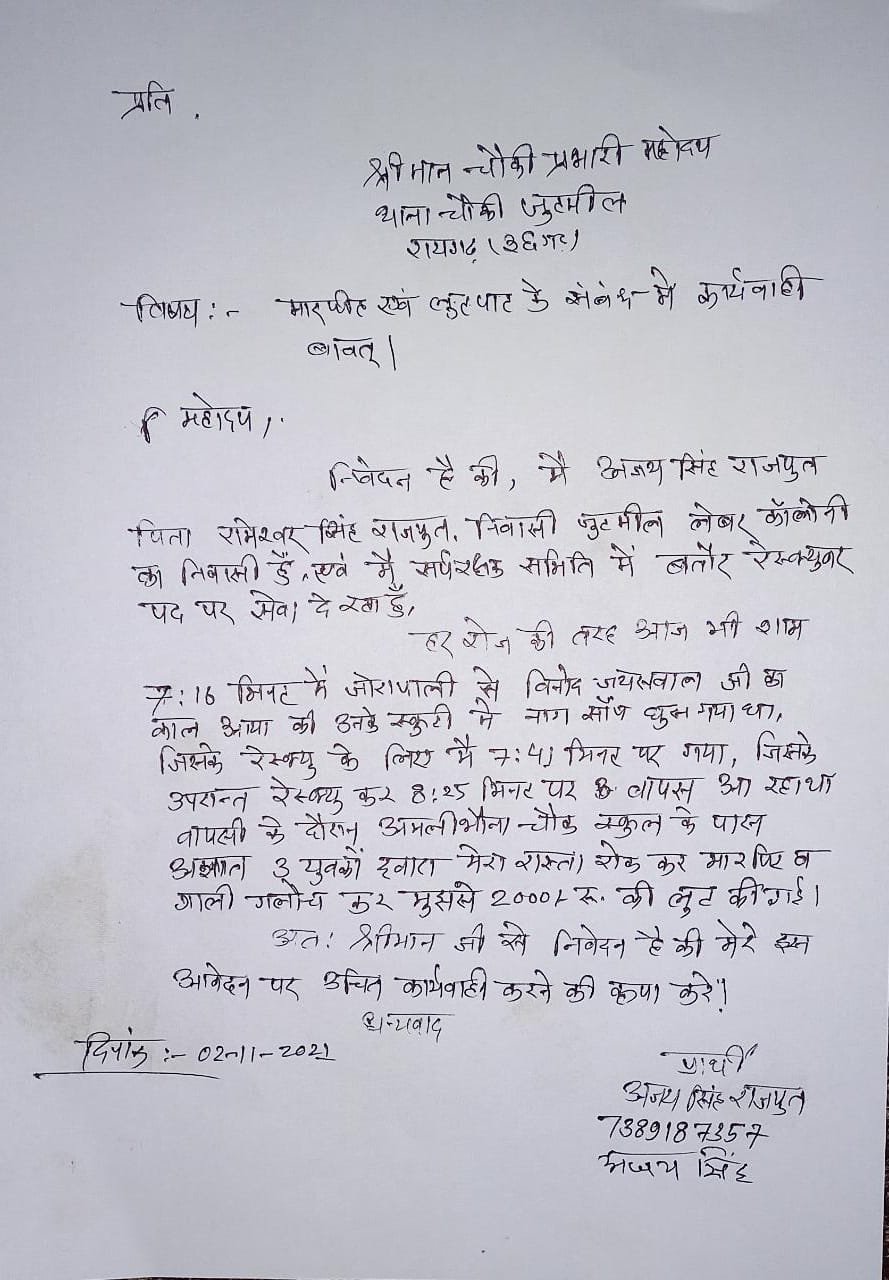 प्रति,
श्रीमान चौकी प्रभारी महोदय
थाना चौकी जुटमील
रायगढ़ (३६गढ़)
विषय :- मारपीट एवं लुटपाट के संबंध में कार्यवाही
बावत्।
महोदय,
निवेदन है की, मै अजय सिंह राजपुत
पिता रामेश्वर सिंह राजपुत, निवासी जुटमील लेबर कॉलोनी
का निवासी हूँ, एवं मै सर्परक्षक समिति में बतौर रेस्क्युवर
पद पर सेवा दे रहा हूँ,
हर रोज की तरह आज भी शाम
7:16 मिनट में जोरापाली से विनोद जयसवाल जी का
काल आया की उनके स्कुटी मे नाग साँप घुस गया था,
जिसके रेस्क्यु के लिए मै 7:41 मिनट पर गया, जिसके
उपरान्त रेस्क्यु कर 8:25 मिनट पर वापस आ रहा था
वापसी के दौरान अमलीभौना चौक स्कुल के पास
अज्ञात 3 युवकों द्वारा मेरा रास्ता रोक कर मारपिट व
गाली गलौच कर मुझसे 2000/- रू. की लुट की गई।
अत: श्रीमान जी से निवेदन है की मेरे इस
आवेदन पर उचित कार्यवाही करने की कृपा करें।
धन्यवाद
दिनांक :- 02-11-2021
प्रार्थी
अजय सिंह राजपुत
7389187357
अजय सिंह